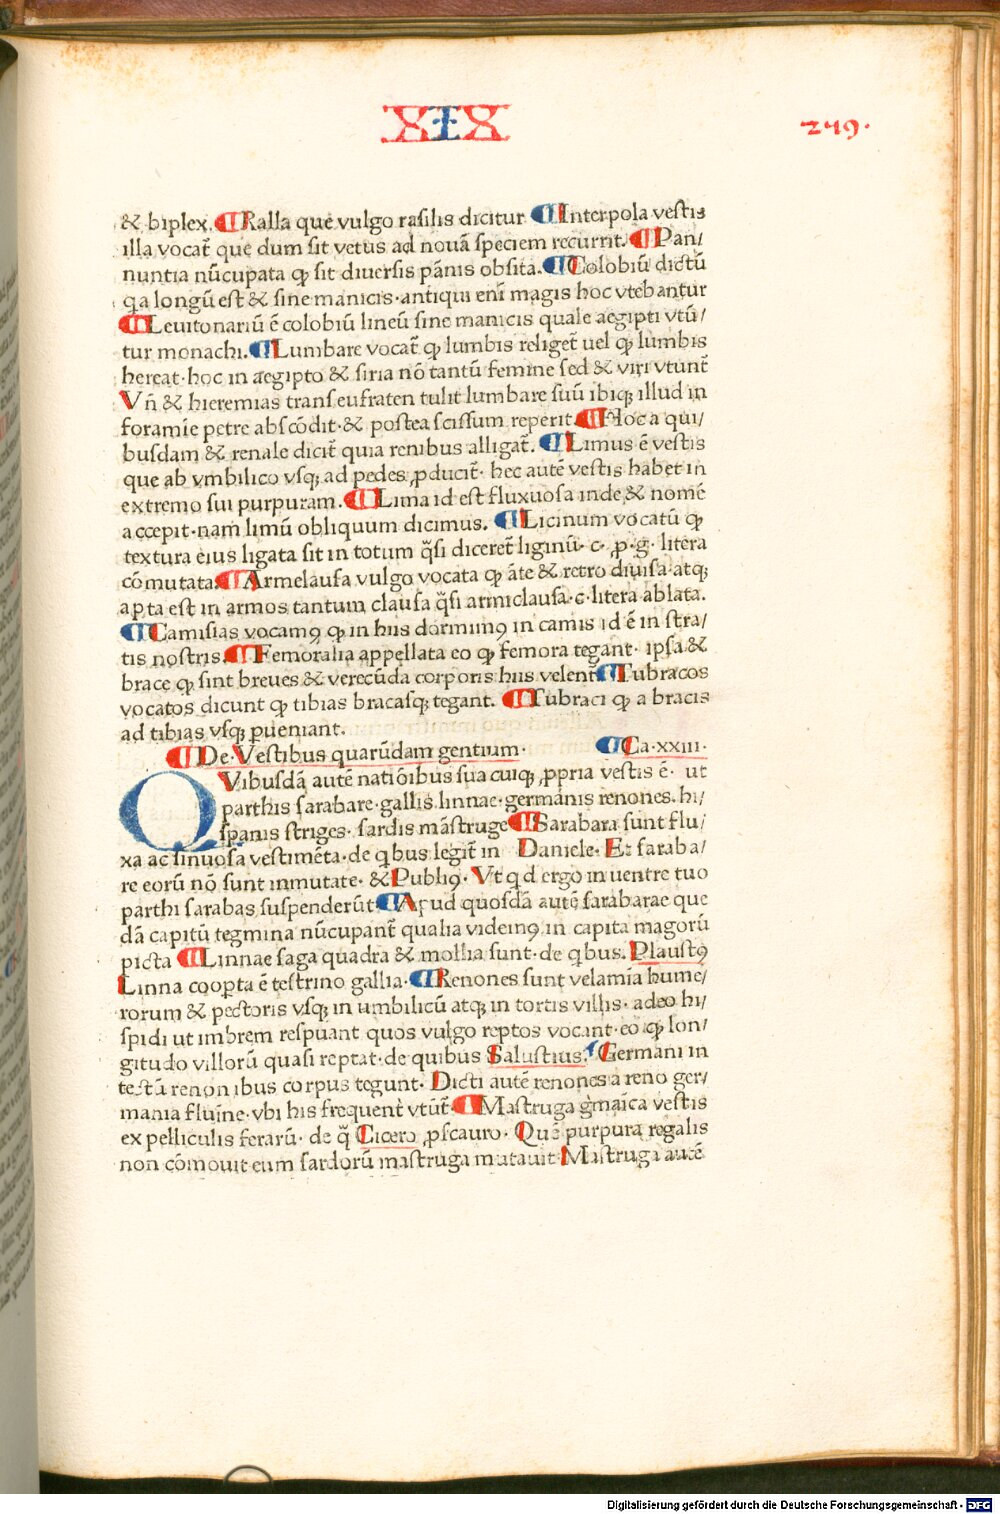 XIX
249.
& biplex. ¶ Ralla que vulgo rasilis dicitur ¶ Interpola vestis
illa vocat̄ que dum sit vetus ad nouā speciem recurrit. ¶ Pan/
nuntia nūcupata ꝙ sit diuersis pānis obsita. ¶ Colobiū dictū
qa longū est & sine manicis·antiqui enī magis hoc vtebantur
¶ Leuitonariū ē colobiū lineū sine manicis quale aegipti vtū/
tur monachi. ¶ Lumbare vocat̄ ꝙ lumbis religet̄ uel ꝙ lumbis
hereat·hoc in aegipto & siria nō tantū femine sed & viri vtunt̄
Vn̄ & hieremias trans eufraten tulit lumbare suū ibiqꝫ illud in
foramīe petre abscōdit·& postea scissum reperit. ¶ Hoc a qui/
busdam & renale dicit̄ quia renibus alligat̄. ¶ Limus ē vestis
que ab vmbilico vsqꝫ ad pedes ꝓducit̄· hec autē vestis habet in
extremo sui purpuram. ¶ Lima id est fluxuosa inde & nomē
accepit·nam limū obliquum dicimus. ¶ Licinum vocatū ꝙ
textura eius ligata sit in totum q̄si diceret̄ liginū· c· ꝓ·g· litera
cōmutata ¶ Armelausa vulgo vocata ꝙ āte & retro diuisa·atqꝫ
apta est in armos tantum clausa q̄si armiclausa·c·litera ablata.
¶ Camisias vocamꝯ ꝙ in hiis dormimꝯ in camis id ē in stra/
tis nostris. ¶ Femoralia appellata eo ꝙ femora tegant· ipsa &
brace ꝙ sint breues & verecūda corporis hiis velent ¶ Tubracos
vocatos dicunt ꝙ tibias bracasqꝫ tegant. ¶ Tubraci ꝙ a bracis
ad tibias vsqꝫ ꝑueniant.
¶ De Vestibus quarūdam gentium· ¶ Ca·xxiii·
QVibusdā autē natiōibus sua cuiqꝫ ꝓpria vestis ē· ut
parthis sarabare·gallis linnae·germanis renones. hi/
spanis striges· sardis māstruge ¶ Sarabara sunt flu/
xa ac sinuosa vestimēta·de qbus legit̄ in Daniele· Et saraba/
re eorū nō sunt inmutate· & Publiꝯ· Vt qd ergo in uentre tuo
parthi sarabas suspenderūt ¶ Apud quosdā autē sarabarae que
dā capitū tegmina nūcupant̄ qualia videmꝯ in capita magorū
picta ¶ Linnae saga quadra & mollia sunt·de qbus. Plaustꝯ
Linna cooꝑta ē testrino gallia· ¶ Renones sunt velamīa hume/
rorum & pectoris vsqꝫ in umbilicū atqꝫ in tortis villis· adeo hi/
spidi ut imbrem respuant quos vulgo reptos vocant·eo ꝙ lon/
gitudo villorū quasi reptat·de quibus Salustius. Germani in
testū renonibus corpus tegunt· Dicti autē renones a reno ger/
mania fluīne·vbi his frequent̄ vtūt̄ ¶ Mastruga gmaīca vestis
ex pelliculis ferarū· de q̄ Cicero ꝓscauro· Quē purpura regalis
non cōmouit eum sardorū mastruga mutauit Mastruga autē
Digitalisierung gefördert durch die Deutsche Forschungsgemeinschaft - DFG